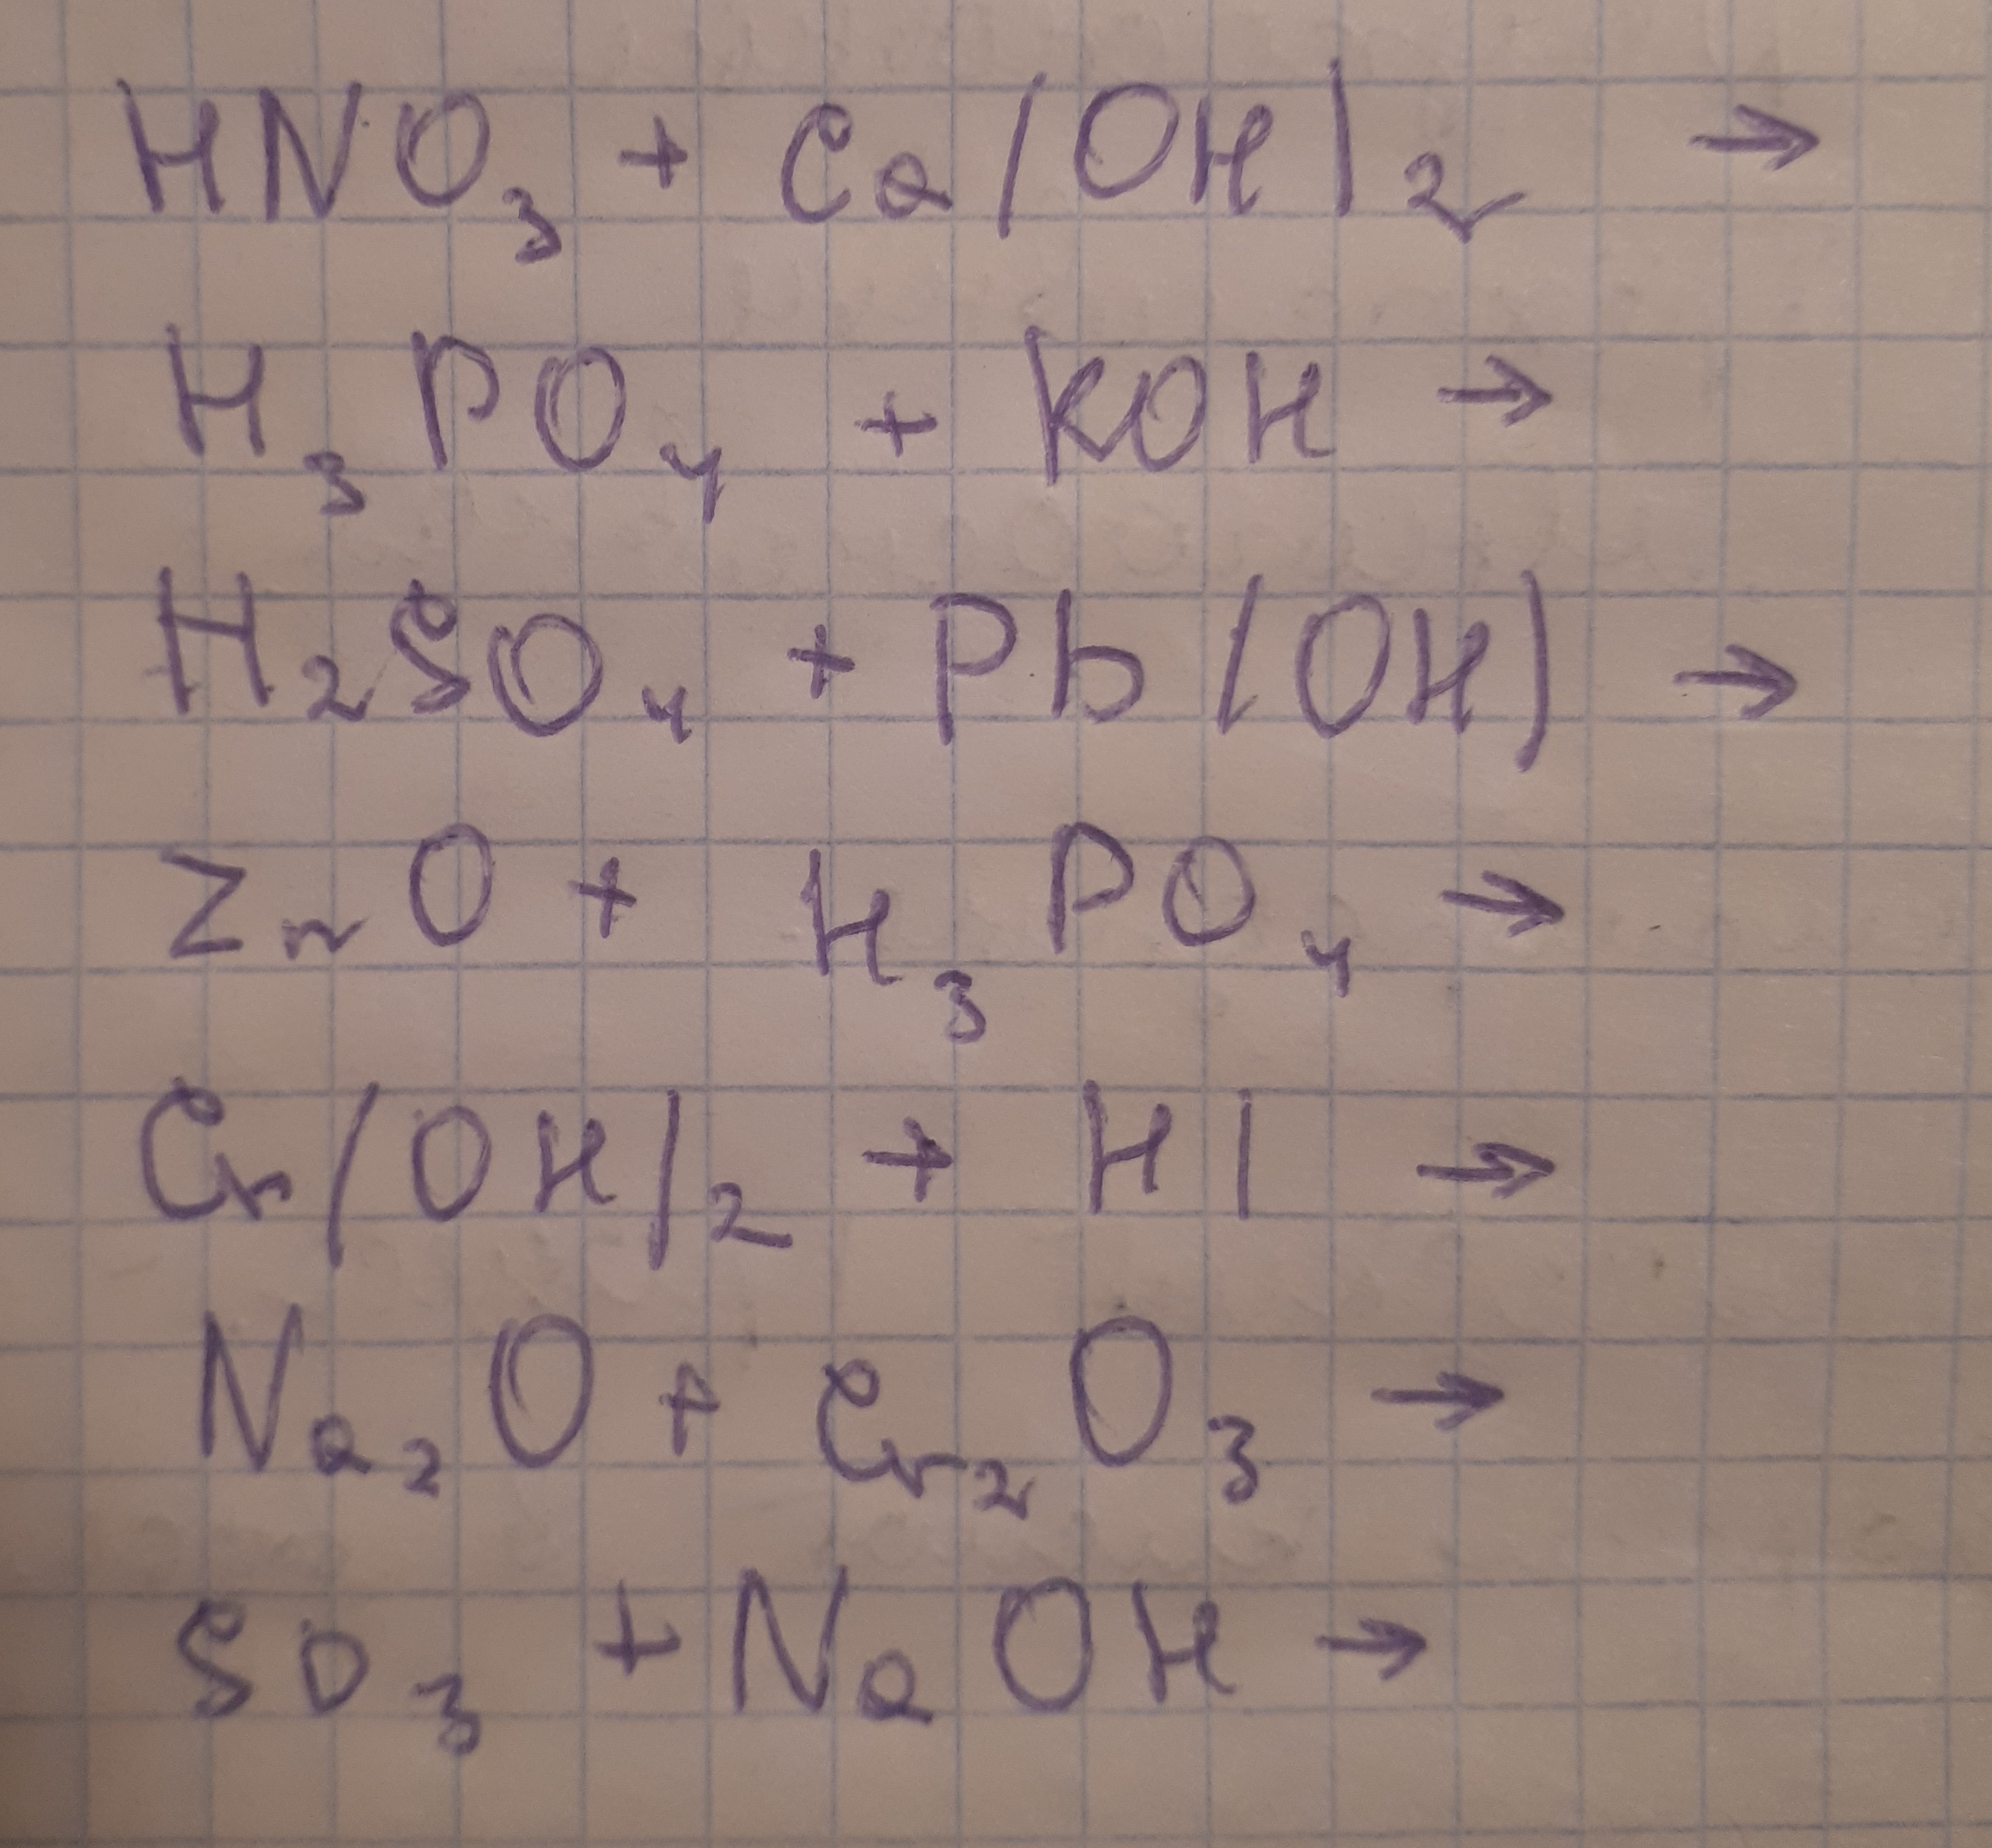 HNO₃ + Ca(OH)₂ →
H₃PO₄ + KOH →
H₂SO₄ + Pb(OH) →
ZnO + H₃PO₄ →
Cr(OH)₂ + HI →
Na₂O + Cr₂O₃ →
SO₃ + NaOH →